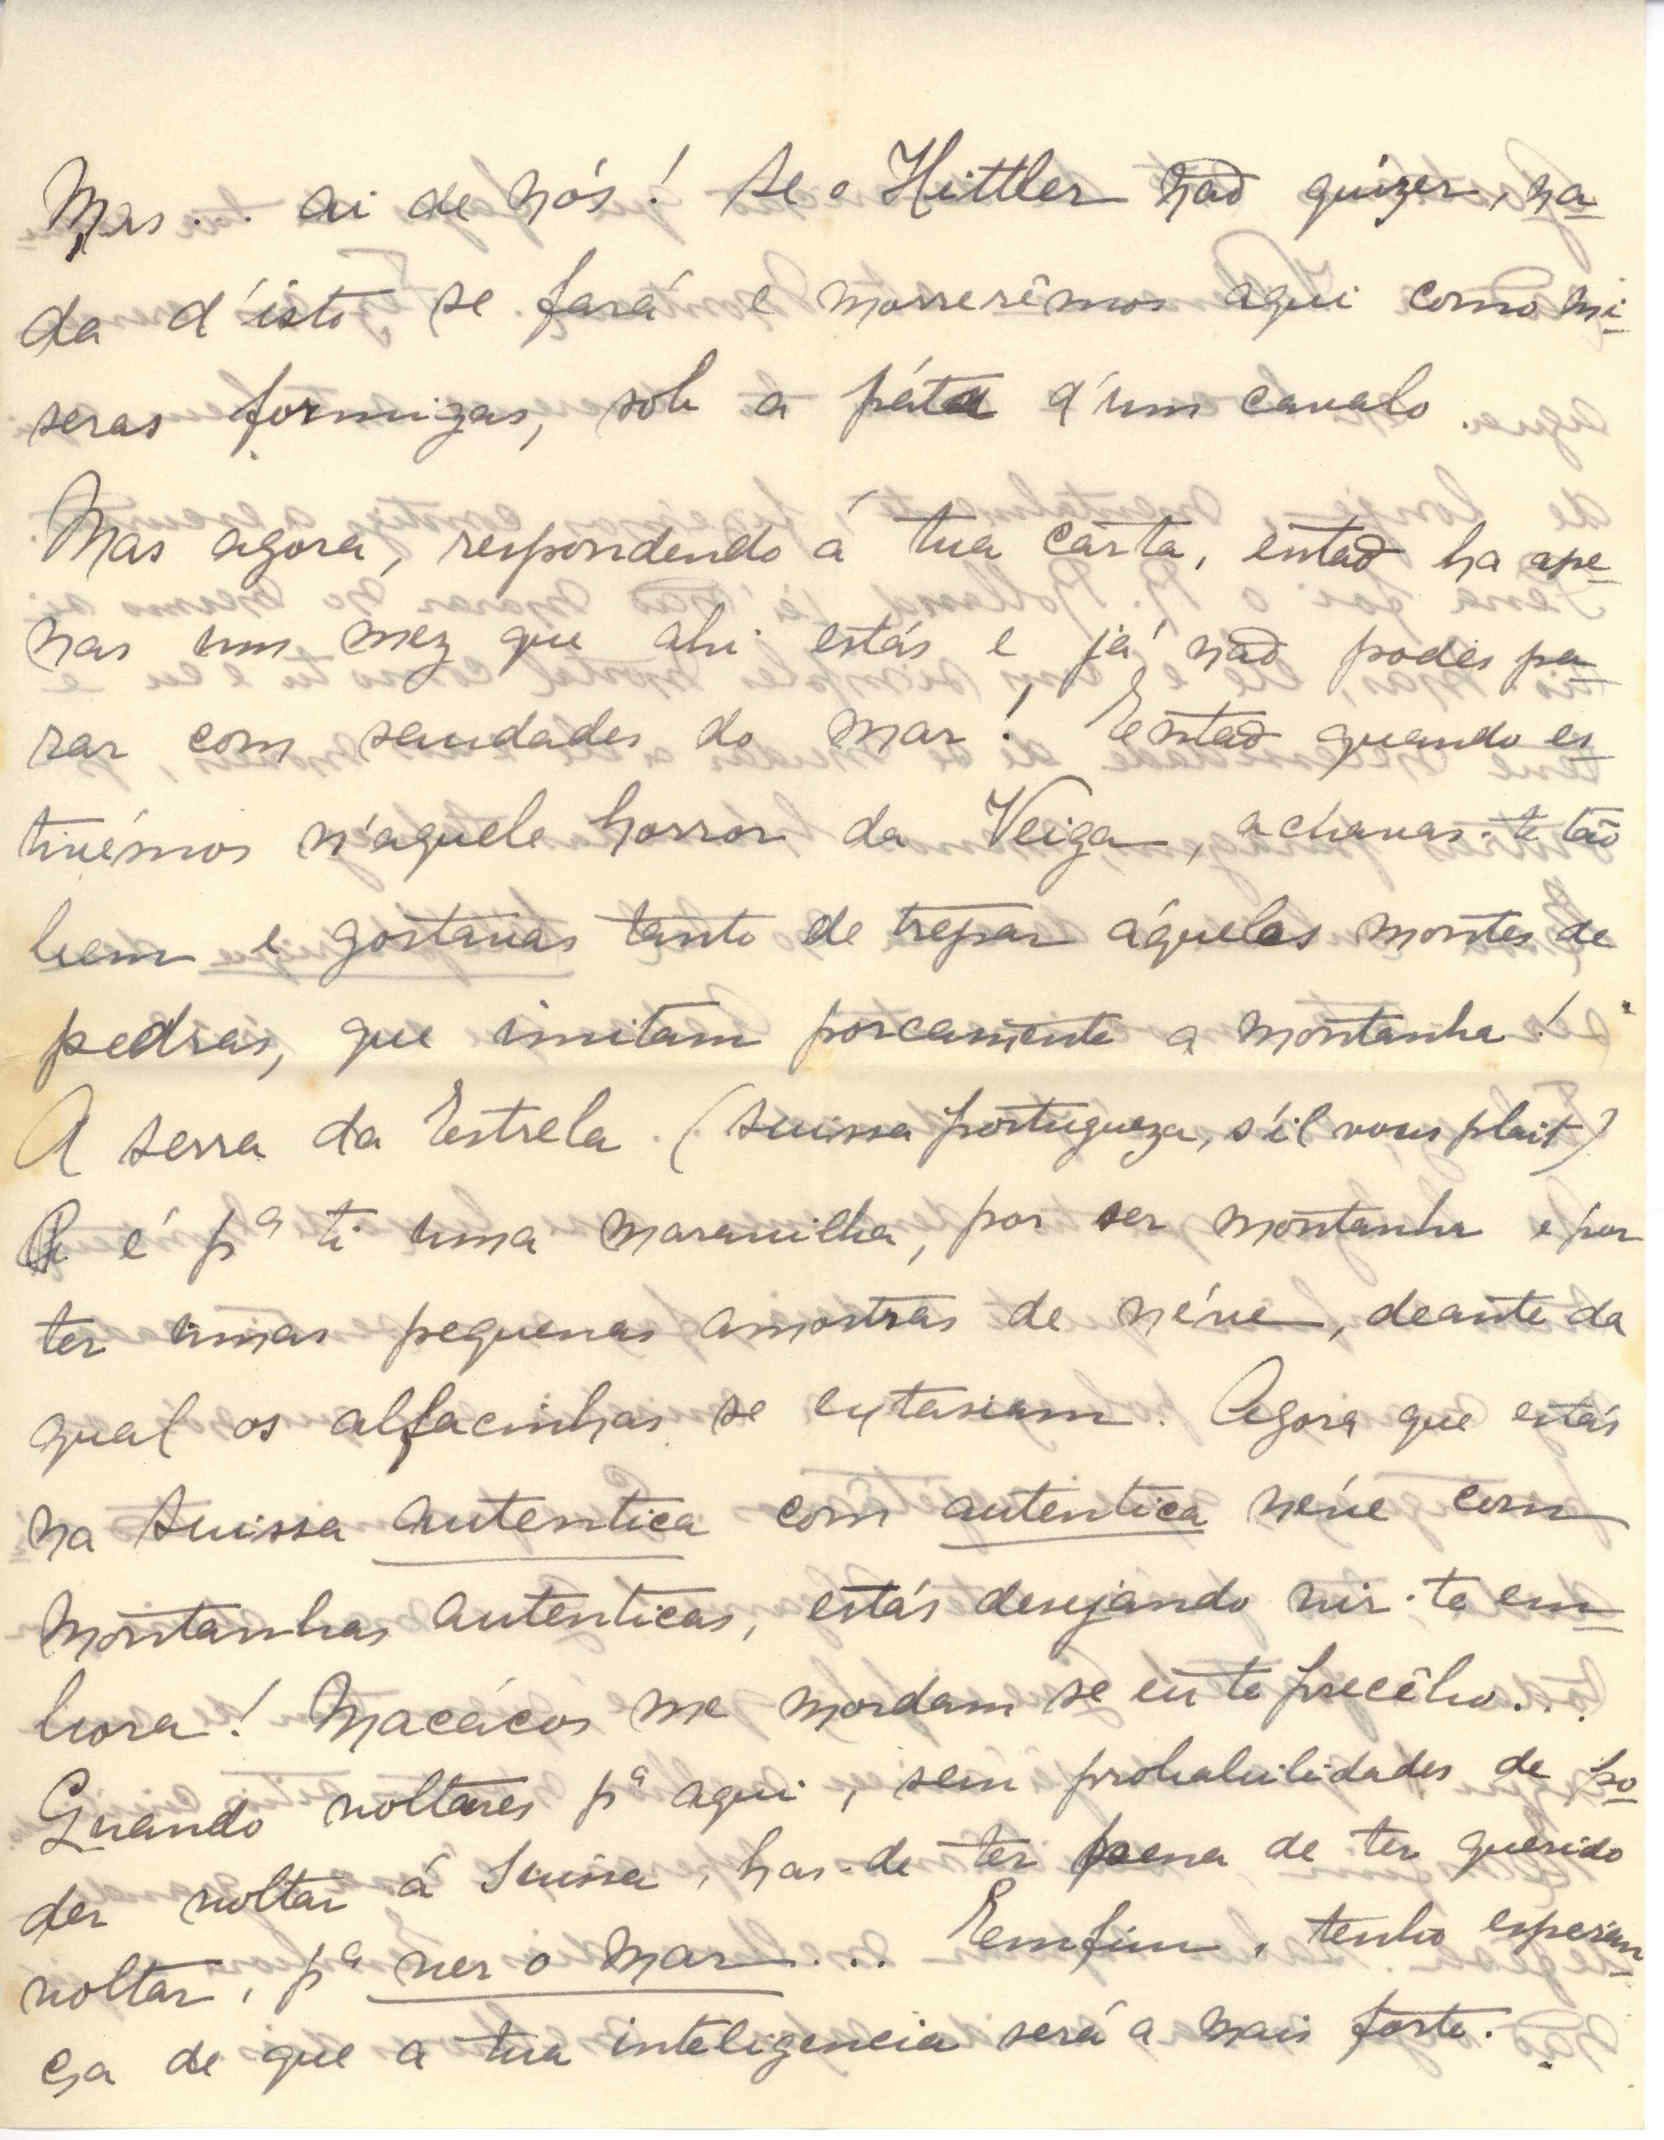 Mas... ai de nós! Se o Hittler não quizer, na-
da d'isto se fará e morrerêmos aqui como mi-
seras formigas, sob a páta d'um cavalo.
Mas agora, respondendo á tua carta, então ha ape-
nas um mez que ahi estás e já não podes pa-
rar com saudades do mar! Então quando es-
tivémos n'aquele horror da Veiga, achavas-te tão
bem e gostavas tanto de trepar áqueles montes de
pedras, que imitam porcamente a montanha!
A serra da Estrela (Suissa portugueza, s'il vous plait)
é pª ti uma maravilha, por ser montanha e por
ter umas pequenas amostras de néve, deante da
qual os alfacinhas se extasiam. Agora que estás
na Suissa autentica com autentica neve com
montanhas autenticas, estás desejando vir-te em-
bora! Macácos me mordam se eu te precêbo...
Quando voltares pª aqui, sem probabilidades de po-
der voltar á Suissa, has-de ter pena de ter querido
voltar, pª ver o mar... Emfim, tenho esperan-
ça de que a tua inteligencia será a mais forte.